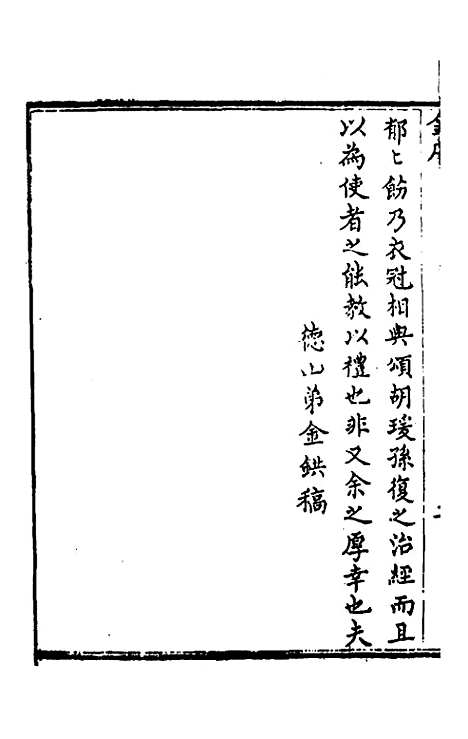 郁〻飭乃衣冠相與頌胡瑗孫復之治經而且
以為使者之能教以禮也非又余之厚幸也夫
德山弟金鉷稿